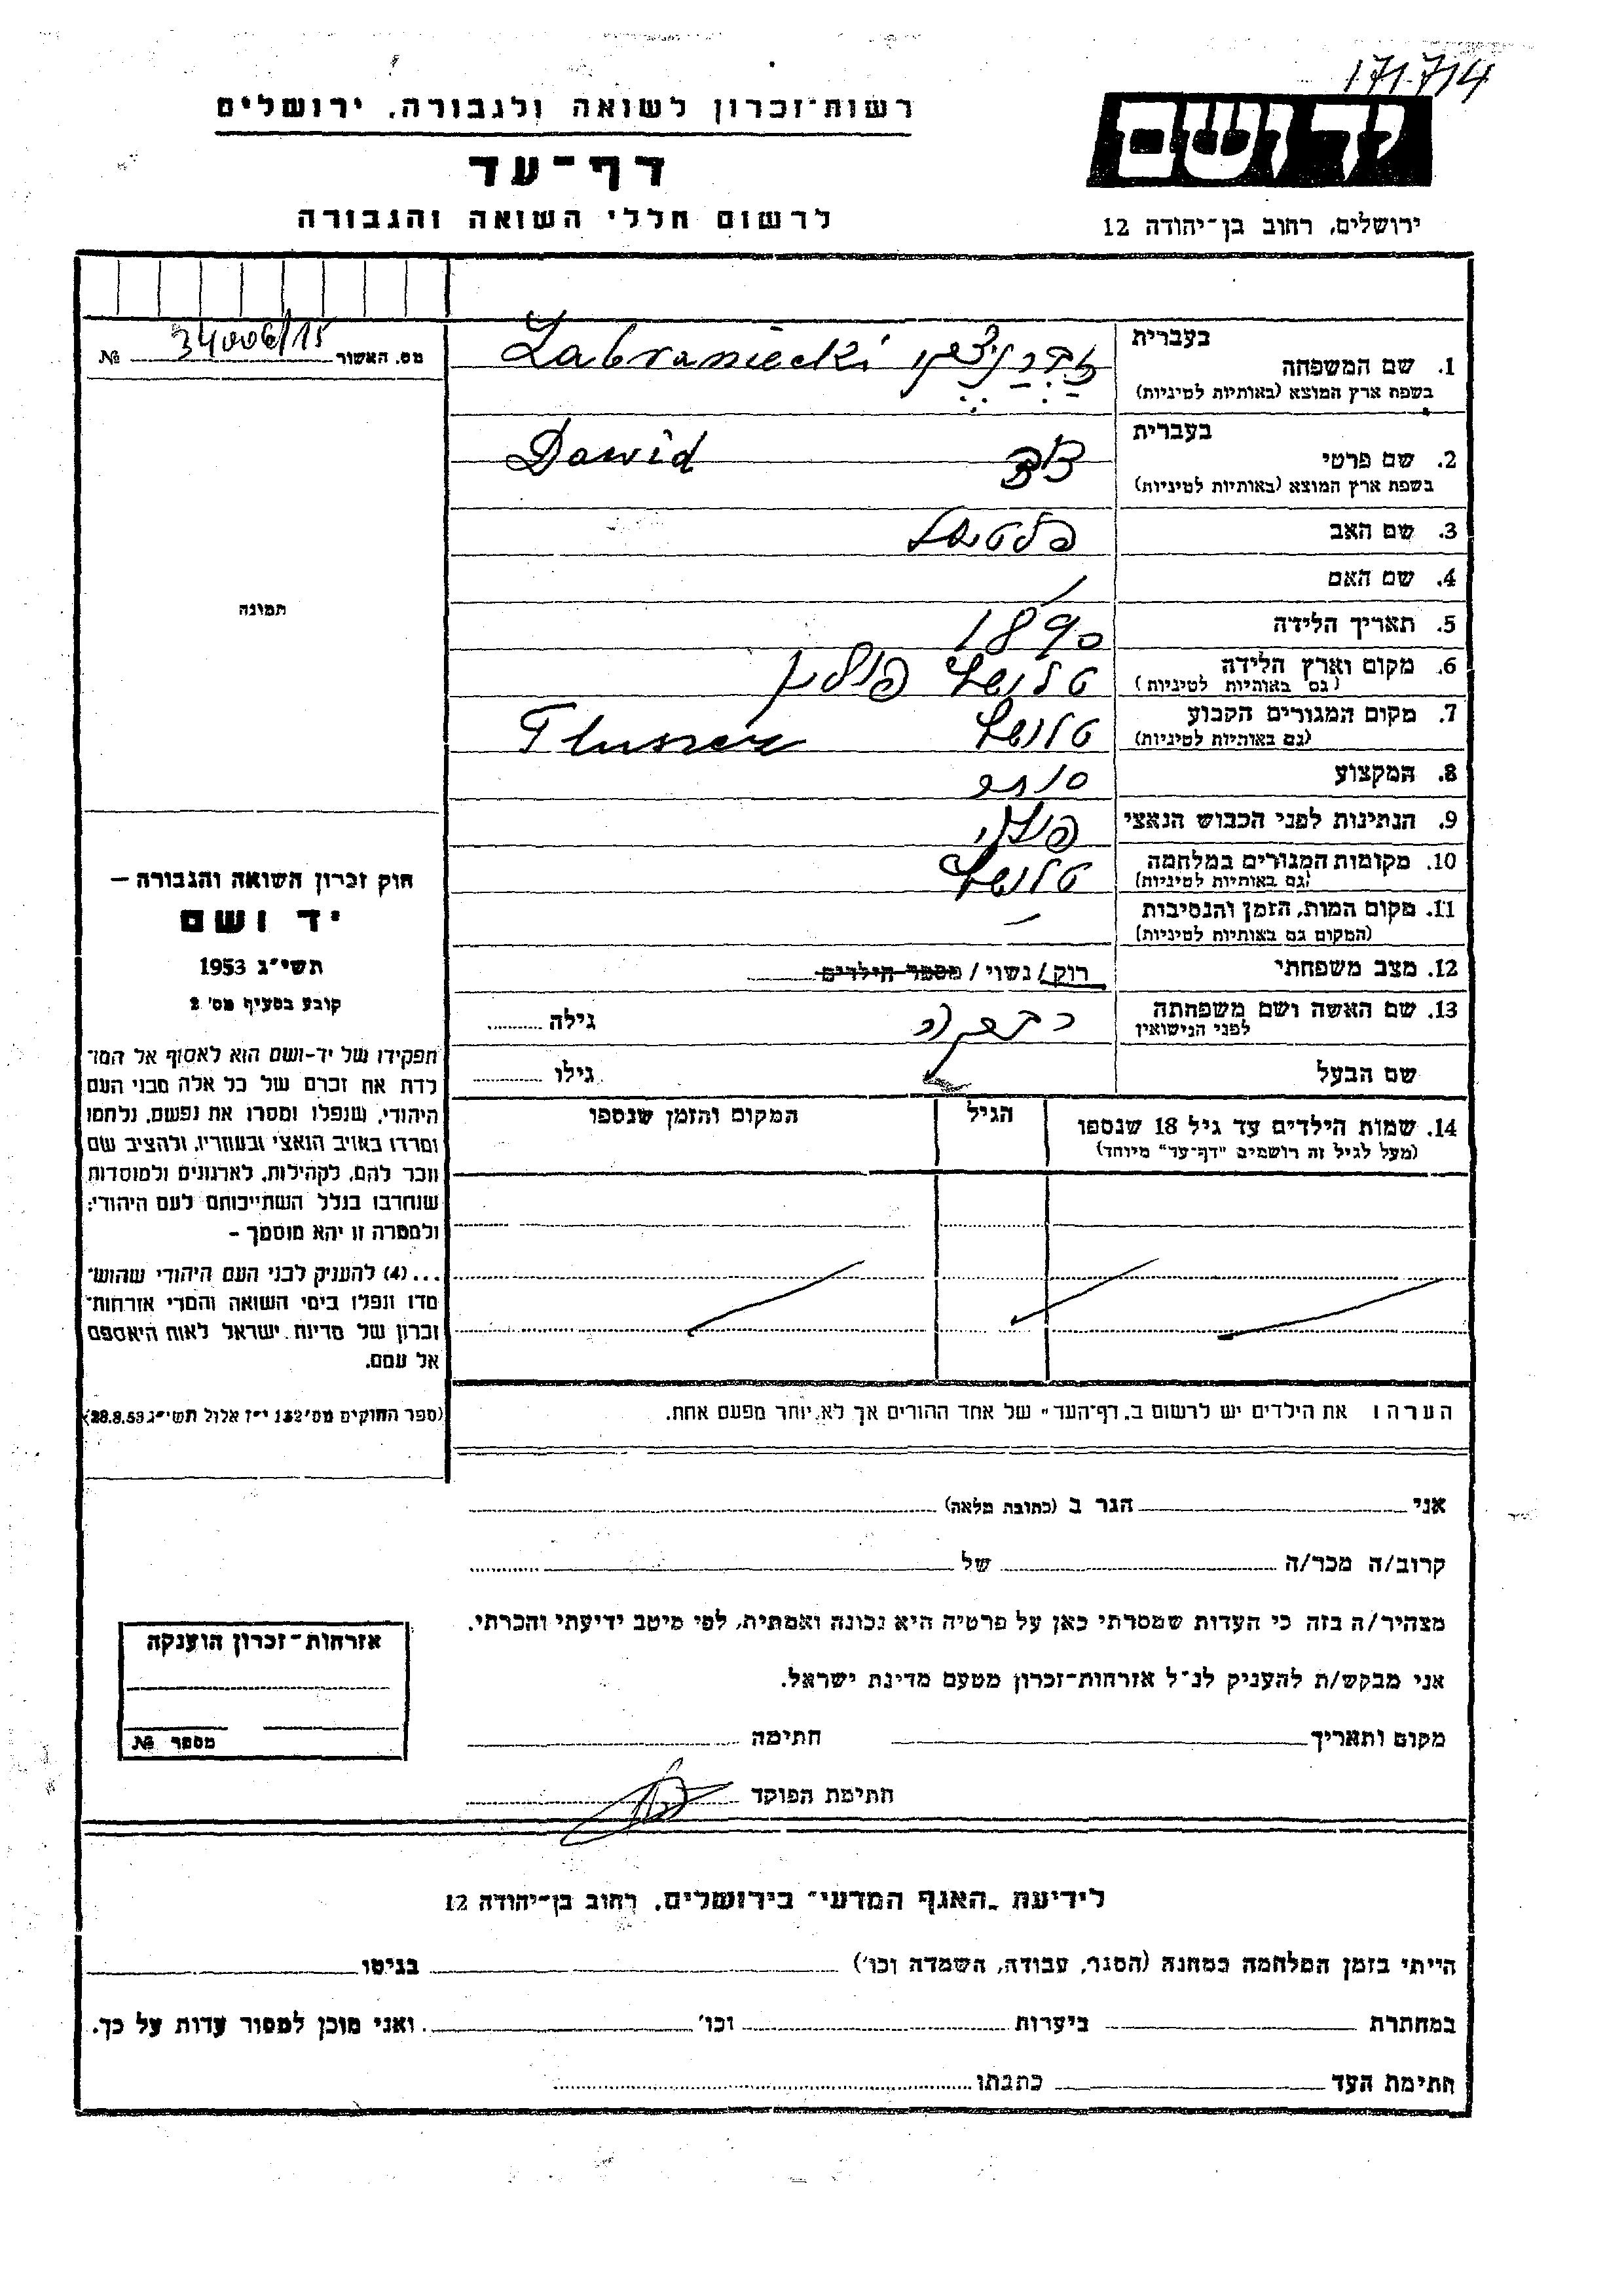 171714
יד ושם
רשות־זכרון לשואה ולגבורה, ירושלים
דף־עד
לרשום חללי השואה והגבורה
ירושלים, רחוב בן־יהודה 12
מס. האשור 34006/15 №
בעברית
1. שם המשפחה Zabraniecki
בשפת ארץ המוצא (באותיות לטיניות)
בעברית
2. שם פרטי דוד Dawid
בשפת ארץ המוצא (באותיות לטיניות)
3. שם האב פלטיאל
4. שם האם
תמונה
5. תאריך הלידה 1890
6. מקום וארץ הלידה טלושץ פולין
(גם באותיות לטיניות)
7. מקום המגורים הקבוע טלושץ Tluszcz
(גם באותיות לטיניות)
8. המקצוע סוחר
9. הנתינות לפני הכבוש הנאצי פולני
10. מקומות המגורים במלחמה טלושץ
(גם באותיות לטיניות)
11. מקום המות, הזמן והנסיבות
(המקום גם באותיות לטיניות)
12. מצב משפחתי רוק/ נשוי/ מספר הילדים
13. שם האשה ושם משפחתה גילה
לפני הנישואין
שם הבעל גילו
14. שמות הילדים עד גיל 18 שנספו הגיל המקום והזמן שנספו
(מעל לגיל זה רושמים "דף־עד" מיוחד)
חוק זכרון השואה והגבורה –
יד ושם
תשי"ג 1953
קובע בסעיף מס' 2
תפקידו של יד-ושם הוא לאסוף אל המו־
לדת את זכרם של כל אלה מבני העם
היהודי, שנפלו ומסרו את נפשם, נלחמו
ומרדו באויב הנאצי ובעוזריו, ולהציב שם
וזכר להם, לקהילות, לארגונים ולמוסדות
שנחרבו בגלל השתייכותם לעם היהודי;
ולמטרה זו יהא מוסמך –
...(4) להעניק לבני העם היהודי שהוש־
מדו ונפלו בימי השואה והמרי אזרחות־
זכרון של מדינת ישראל לאות היאספם
אל עמם.
(ספר החוקים מס' 132 י"ז אלול תשי"ג 28.8.53)
הערה: את הילדים יש לרשום ב„דף־העד" של אחד ההורים אך לא יותר מפעם אחת.
אני הגר ב (כתובת מלאה)
קרוב/ה מכר/ה של
מצהיר/ה בזה כי העדות שמסרתי כאן על פרטיה היא נכונה ואמתית, לפי מיטב ידיעתי והכרתי.
אני מבקש/ת להעניק לנ"ל אזרחות־זכרון מטעם מדינת ישראל.
מקום ותאריך חתימה
חתימת הפוקד
אזרחות־זכרון הוענקה
מספר №
לידיעת „האגף המדעי" בירושלים, רחוב בן־יהודה 12
הייתי בזמן המלחמה במחנה (הסגר, עבודה, השמדה וכו') בגיטו
במחתרת ביערות וכו' ואני מוכן למסור עדות על כך.
חתימת העד כתבתו